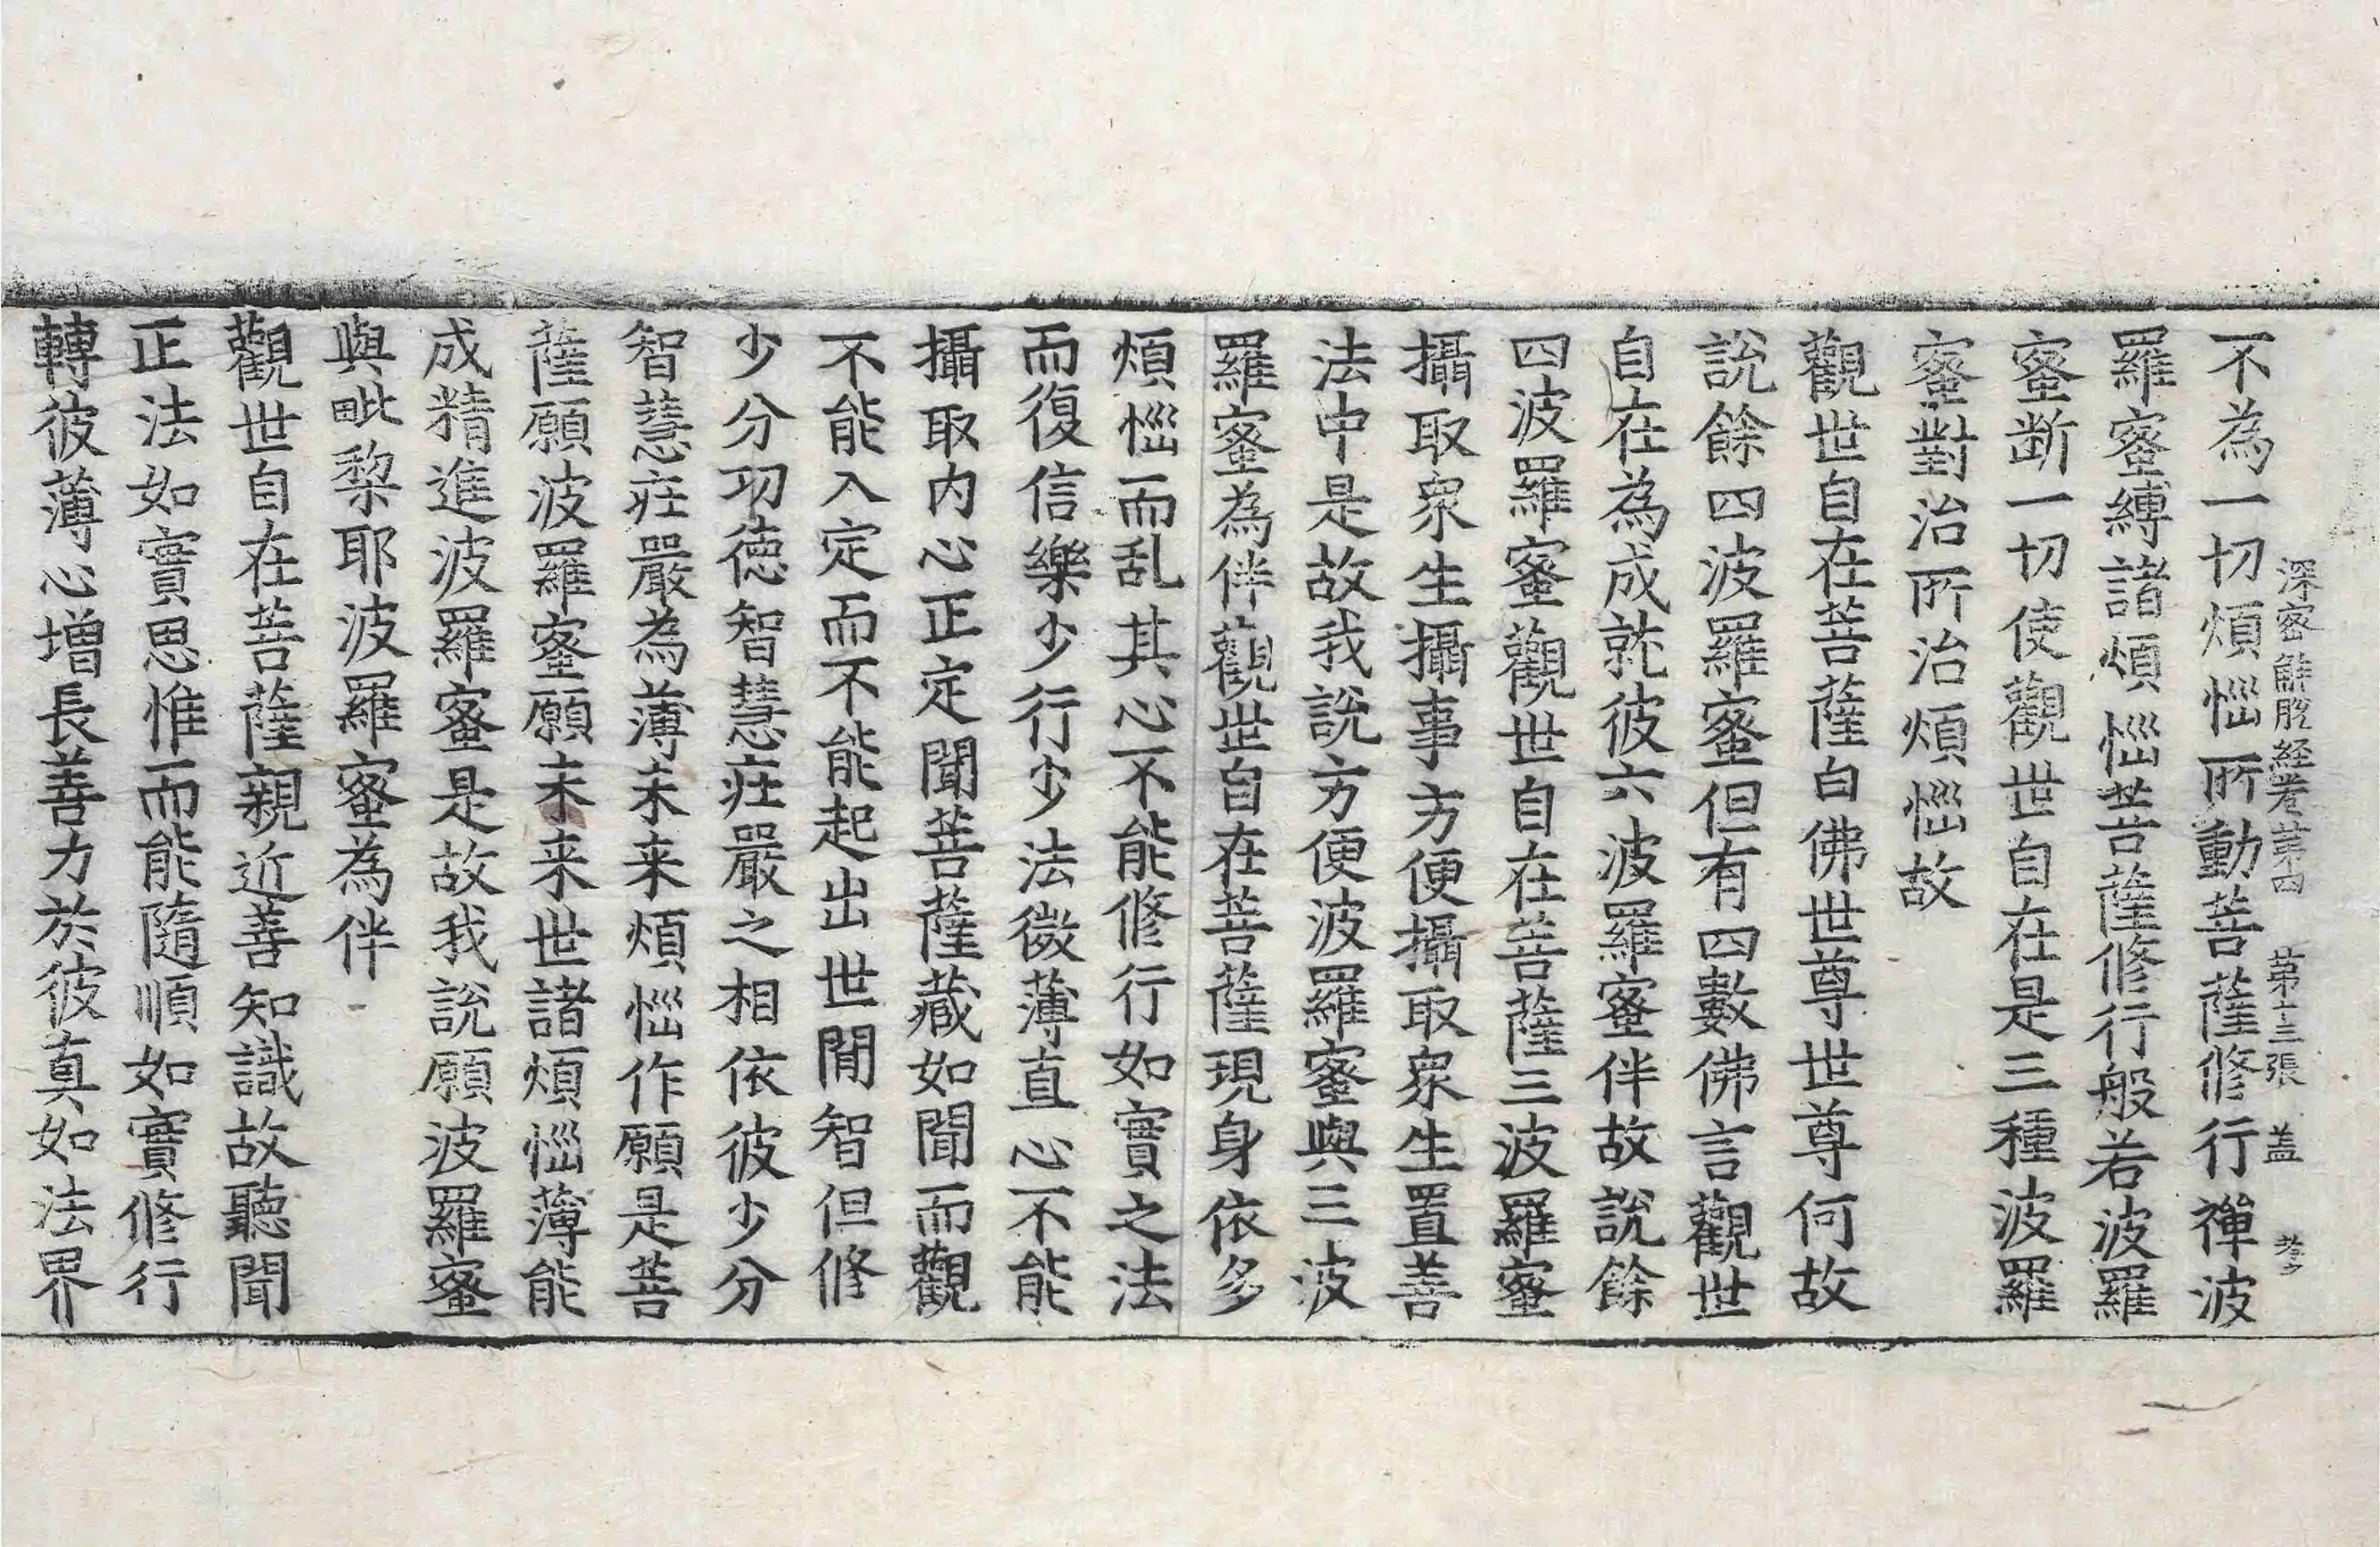 深密解脫経卷第四　第十三張　盖
不為一切煩惱所動菩薩修行禪波
羅蜜縛諸煩惱菩薩修行般若波羅
蜜断一切使觀世自在是三種波羅
蜜對治所治煩惱故
觀世自在菩薩白佛世尊世尊何故
說餘四波羅蜜但有四數佛言觀世
自在為成就彼六波羅蜜伴故說餘
四波羅蜜觀世自在菩薩三波羅蜜
攝取衆生攝事方便攝取衆生置善
法中是故我說方便波羅蜜與三波
羅蜜為伴觀世自在菩薩現身依多
煩惱而乱其心不能修行如實之法
而復信樂少行少法微薄直心不能
攝取内心正定聞菩薩藏如聞而觀
不能入定而不能起出世閒智但修
少分功德智慧莊嚴之相依彼少分
智慧莊嚴為薄未来煩惱作願是菩
薩願波羅蜜願未来世諸煩惱薄能
成精進波羅蜜是故我說願波羅蜜
與毗梨耶波羅蜜為伴
觀世自在菩薩親近善知識故聽聞
正法如實思惟而能隨順如實修行
轉彼薄心增長善力於彼真如法界